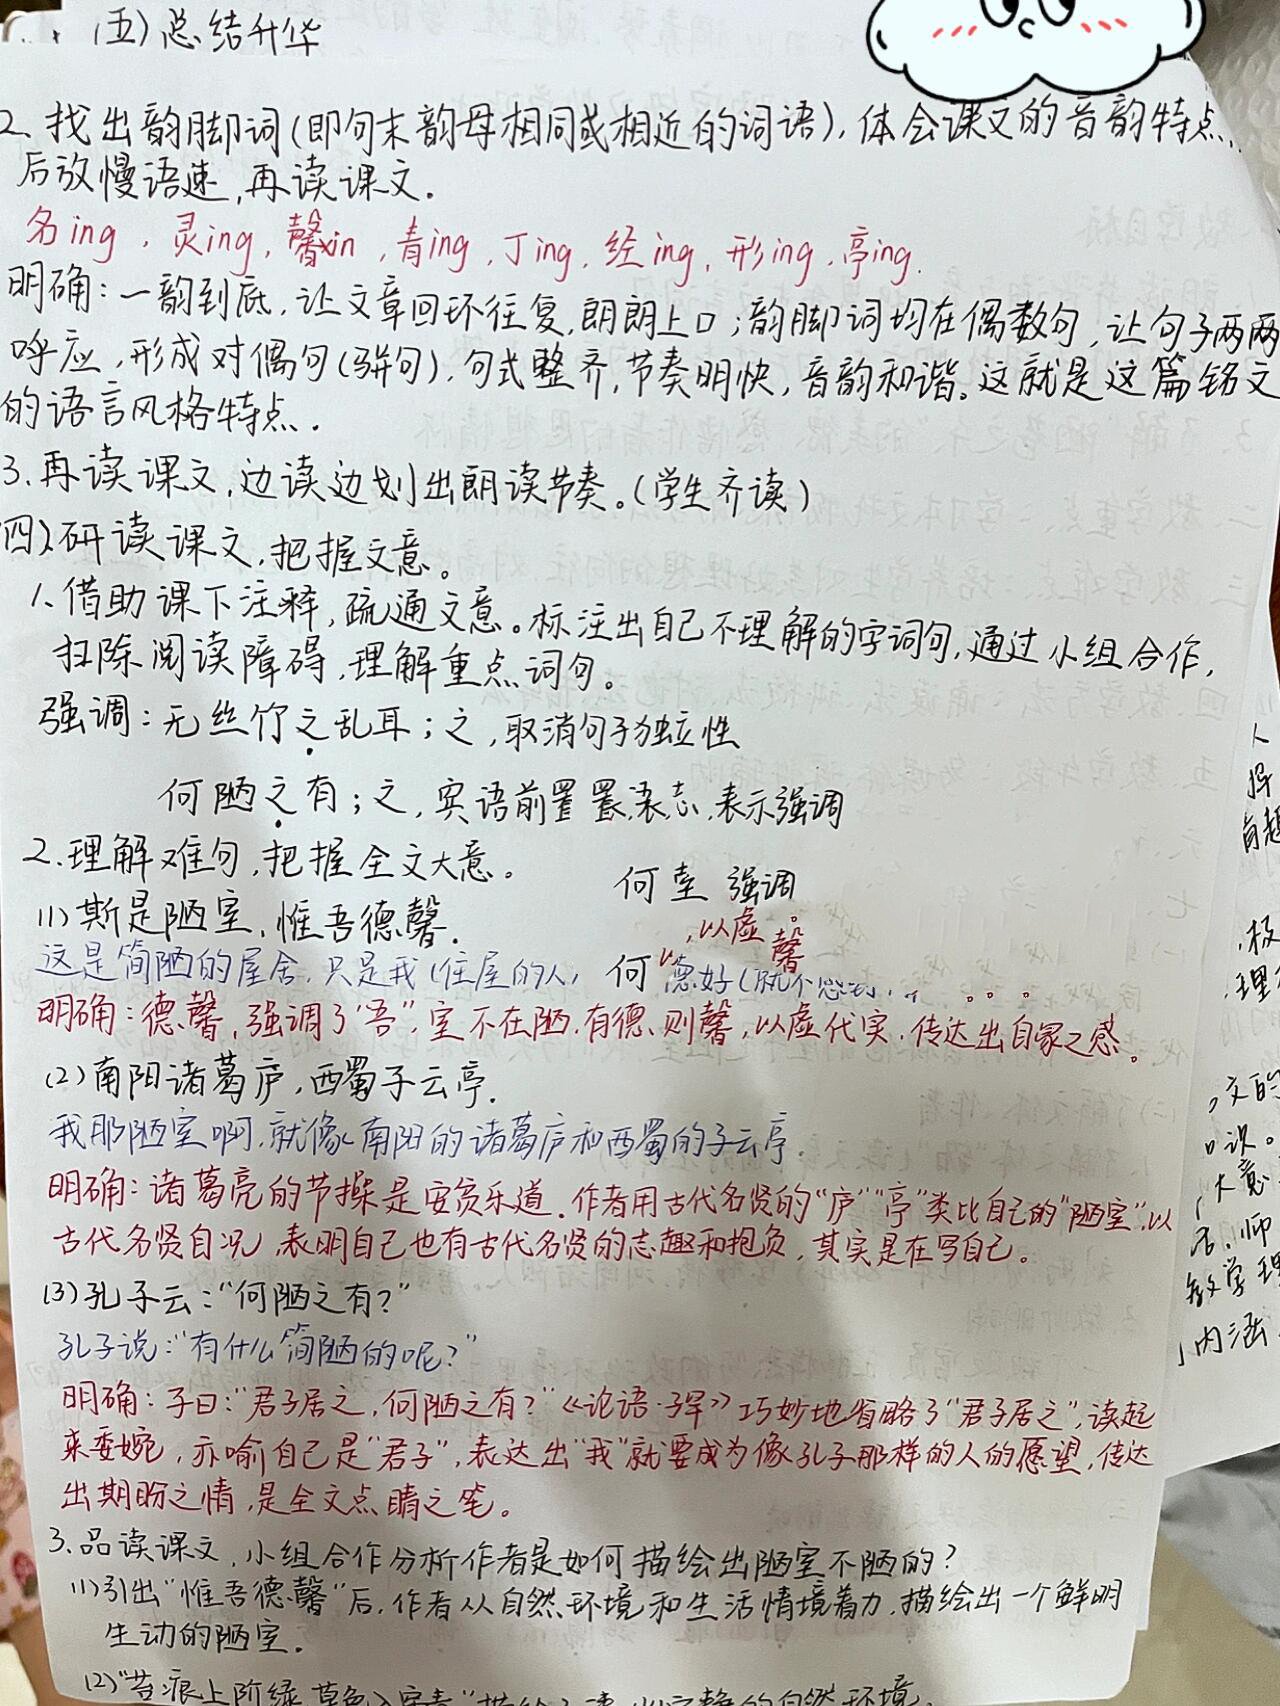 (五)总结升华
2.找出韵脚词(即句末韵母相同或相近的词语),体会课文的音韵特点,
后放慢语速,再读课文.
名ing,灵ing,馨xin,青ing,丁ing,经ing,形ing,亭ing.
明确:一韵到底,让文章回环往复,朗朗上口;韵脚词均在偶数句,让句子两两
呼应,形成对偶句(骈句),句式整齐,节奏明快,音韵和谐。这就是这篇铭文
的语言风格特点.
3.再读课文,边读边划出朗读节奏。(学生齐读)
(四)研读课文,把握文意。
1.借助课下注释,疏通文意。标注出自己不理解的字词句,通过小组合作,
扫除阅读障碍,理解重点词句。
强调:无丝竹之乱耳;之,取消句子独立性
何陋之有;之,宾语前置 表示强调
2.理解难句,把握全文大意。
何 强调
(1)斯是陋室,惟吾德馨.
以虚 馨
这是简陋的屋舍,只是我(住屋的人) 何 好(就不感到
明确:德馨,强调了"吾",室不在陋,有德则馨,以虚代实,传达出自豪之感。
(2)南阳诸葛庐,西蜀子云亭.
我那陋室啊,就像南阳的诸葛庐和西蜀的子云亭.
明确:诸葛亮的节操是安贫乐道.作者用古代名贤的"庐""亭"类比自己的"陋室",以
古代名贤自况,表明自己也有古代名贤的志趣和抱负,其实是在写自己。
(3)孔子云:"何陋之有?"
孔子说:"有什么简陋的呢?"
明确:子曰:"君子居之,何陋之有?"《论语·子罕》巧妙地省略了"君子居之",读起
来委婉,亦喻自己是"君子",表达出"我"就要成为像孔子那样的人的愿望,传达
出期盼之情,是全文点睛之笔。
3.品读课文,小组合作分析作者是如何描绘出陋室不陋的?
(1)引出"惟吾德馨"后,作者从自然环境和生活情境着力,描绘出一个鲜明
生动的陋室.
(2)"苔痕上阶绿,草色入帘青"描绘 的自然环境.
极
理
文的
识。
大意
师
教学理
内涵